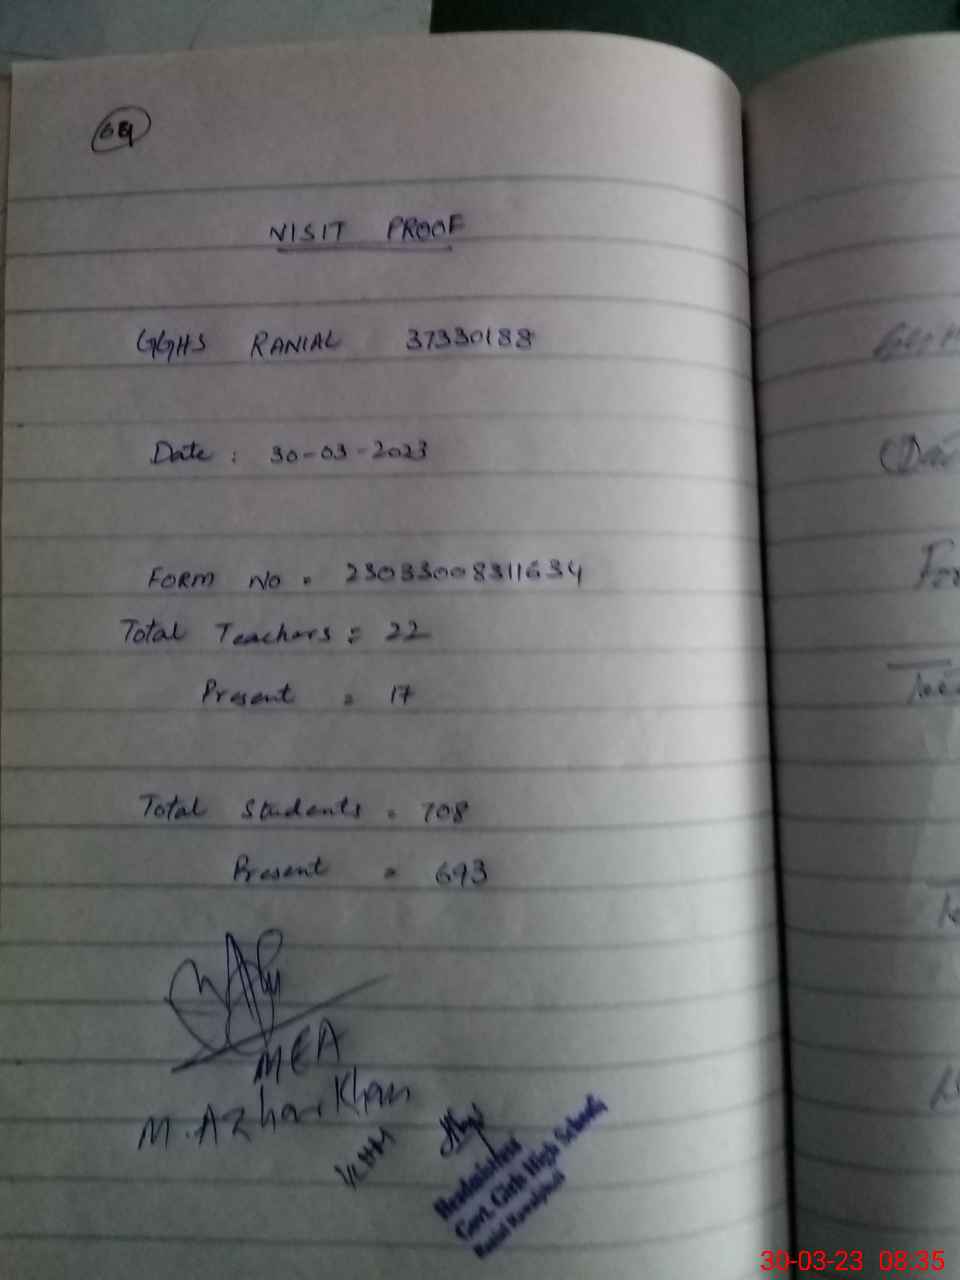 VISIT PROOF
GGHS RANIAL 37330188
Date : 30-03-2023
FORM NO = 23033008311634
Total Teachers = 22
Present = 17
Total Students = 708
Present = 693
MEA
M. Azhar Khan
Headmistress
Govt. Girls High School,
Ranial Rawalpindi
30-03-23 08:35